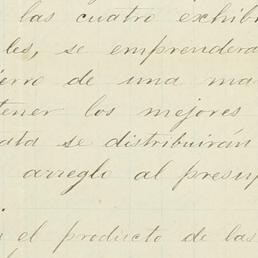 las cuatro exhibi
les, se emprendera
ierro de una ma
tener los mejores
ata se distribuirán
arreglo al presup
el producto de las